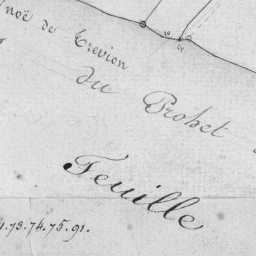 noë de Trevien
du Probet
Feuille
.73.74.75.91.